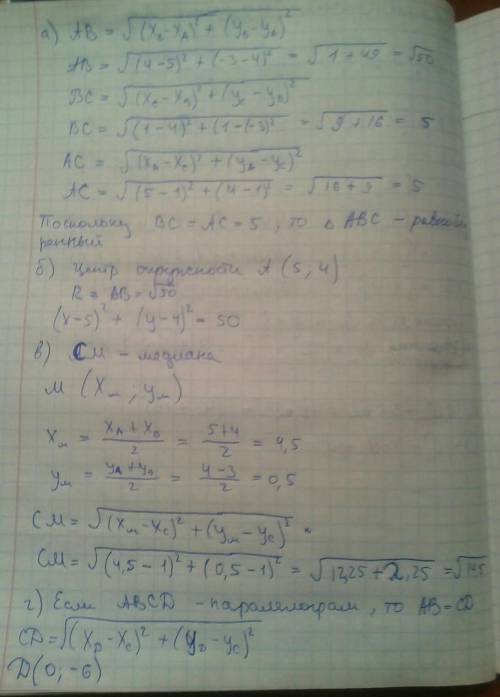 а) AB = √(x_B - x_A)² + (y_B - y_A)²
AB = √(4-5)² + (-3-4)² = √1+49 = √50
BC = √(x_C - x_B)² + (y_C - y_B)²
BC = √(1-4)² + (1-(-3)² = √9+16 = 5
AC = √(x_A - x_C)² + (y_A - y_C)²
AC = √(5-1)² + (4-1)² = √16+9 = 5
Поскольку BC = AC = 5, то Δ ABC - равнобед
ренный
б) Центр окружности A (5, 4)
R = AB = √50
(x-5)² + (y-4)² = 50
в) CM - медиана
M (x_м ; y_м)
x_м = x_A + x_B / 2 = 5+4 / 2 = 4,5
y_м = y_A + y_B / 2 = 4-3 / 2 = 0,5
CM = √(x_м - x_C)² + (y_м - y_C)²
CM = √(4,5-1)² + (0,5-1)² = √12,25 + 2,25 = √14,5
г) Если ABCD - паралелограм, то AB = CD
CD = √(x_D - x_C)² + (y_D - y_C)²
D(0; -6)